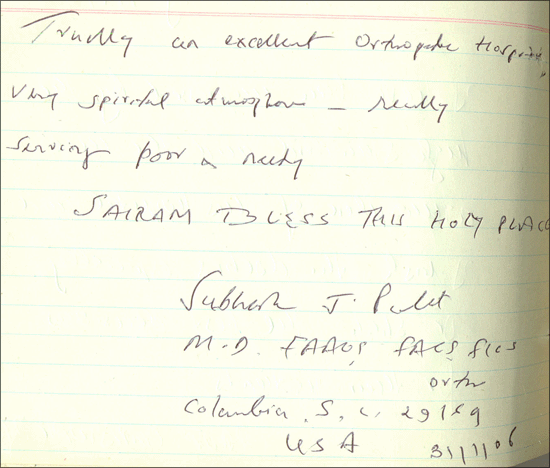 Trully an excellent Orthopedic Hospital
Very spirital atmosphere – really
serving poor & needy
SAIRAM BLESS THIS HOLY PLACE
Subhash J.
M.D. FAAOS, FACS, FICS
Ortho
Columbia, S.C. 29169
USA 31/1/06